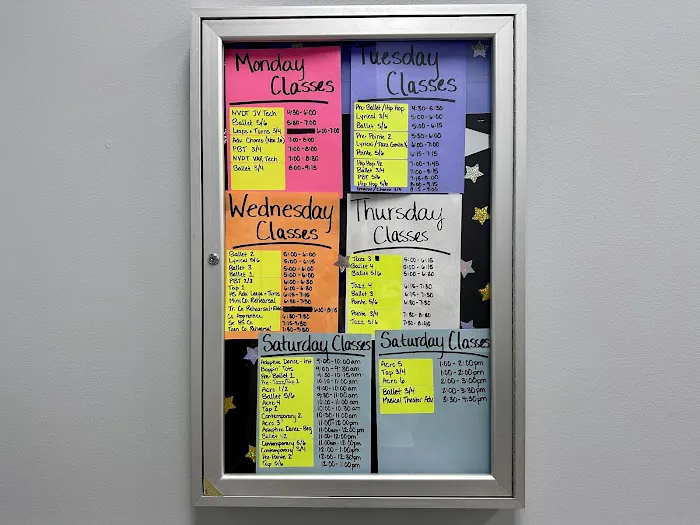 Monday
Classes
NVDT JV Tech 4:30-6:00
Ballet 5/6 5:30-7:00
Leaps + Turns 3/4 6:00-7:00
Adv. Choreo 7:00-8:00
PBT 3/4 7:00-8:00
NVDT VAR Tech 7:00-8:30
Ballet 3/4 8:00-8:45
Tuesday
Classes
Pre-Ballet/Hip Hop 4:30-5:30
Lyrical 3/4 5:00-6:00
Ballet 5/6 5:00-6:15
Pre-Pointe 2 5:30-6:00
Lyrical/Jazz 6:00-7:00
Pointe 5/6 6:15-7:15
Hip Hop 1/2 7:00-7:45
Ballet 3/4 7:00-8:00
PBT 5/6 7:15-8:00
Hip Hop 5/6 8:00-8:45
Wednesday
Classes
Ballet 2 5:00-6:00
Lyrical 5/6 5:00-6:15
Ballet 3 5:00-6:00
Ballet 1 5:00-6:00
PBT 2/3 6:00-6:30
Tap 1
HS Adv. Leaps + Turns 6:15-7:15
Mini Co. Rehearsal 6:30-7:30
Jr. Co. Rehearsal 6:30-8:15
Co. Apprentice
Sr. HS Co. 7:15-9:30
Teen Co. Rehearsal 7:30-9:30
Thursday
Classes
Jazz 3 5:00-6:15
Ballet 4 5:00-6:15
Ballet 5/6 5:00-6:30
Jazz 4 6:15-7:30
Ballet 3 6:15-7:30
Pointe 5/6 6:30-7:30
Pointe 3/4 7:30-8:00
Jazz 5/6 7:30-8:45
Saturday Classes
Adaptive Dance-Int 9:00-10:00am
Boppin' Tots 9:00-9:30am
Pre-Ballet 1 9:30-10:15am
Pre-Jazz/Tap 1 10:15-11:00am
Acro 1/2 9:00-10:00am
Ballet 5/6 9:30-11:00am
Acro 4 10:00-11:00am
Tap 2 10:00-10:30am
Contemporary 2 10:30-11:00am
Acro 3 11:00-12:00pm
Adaptive Dance-Beg
Ballet 1/2 11:00-12:00pm
Contemporary 5/6 11:00am-12:00pm
Contemporary 3/4 12:00-1:00pm
Pre-Pointe 2 12:00-12:30pm
Tap 5/6 12:00-1:00pm
Saturday Classes
Acro 5 1:00-2:00pm
Tap 3/4 1:00-2:00pm
Acro 6 2:00-3:00pm
Ballet 3/4 2:00-3:30pm
Musical Theater Adv 3:30-4:30pm